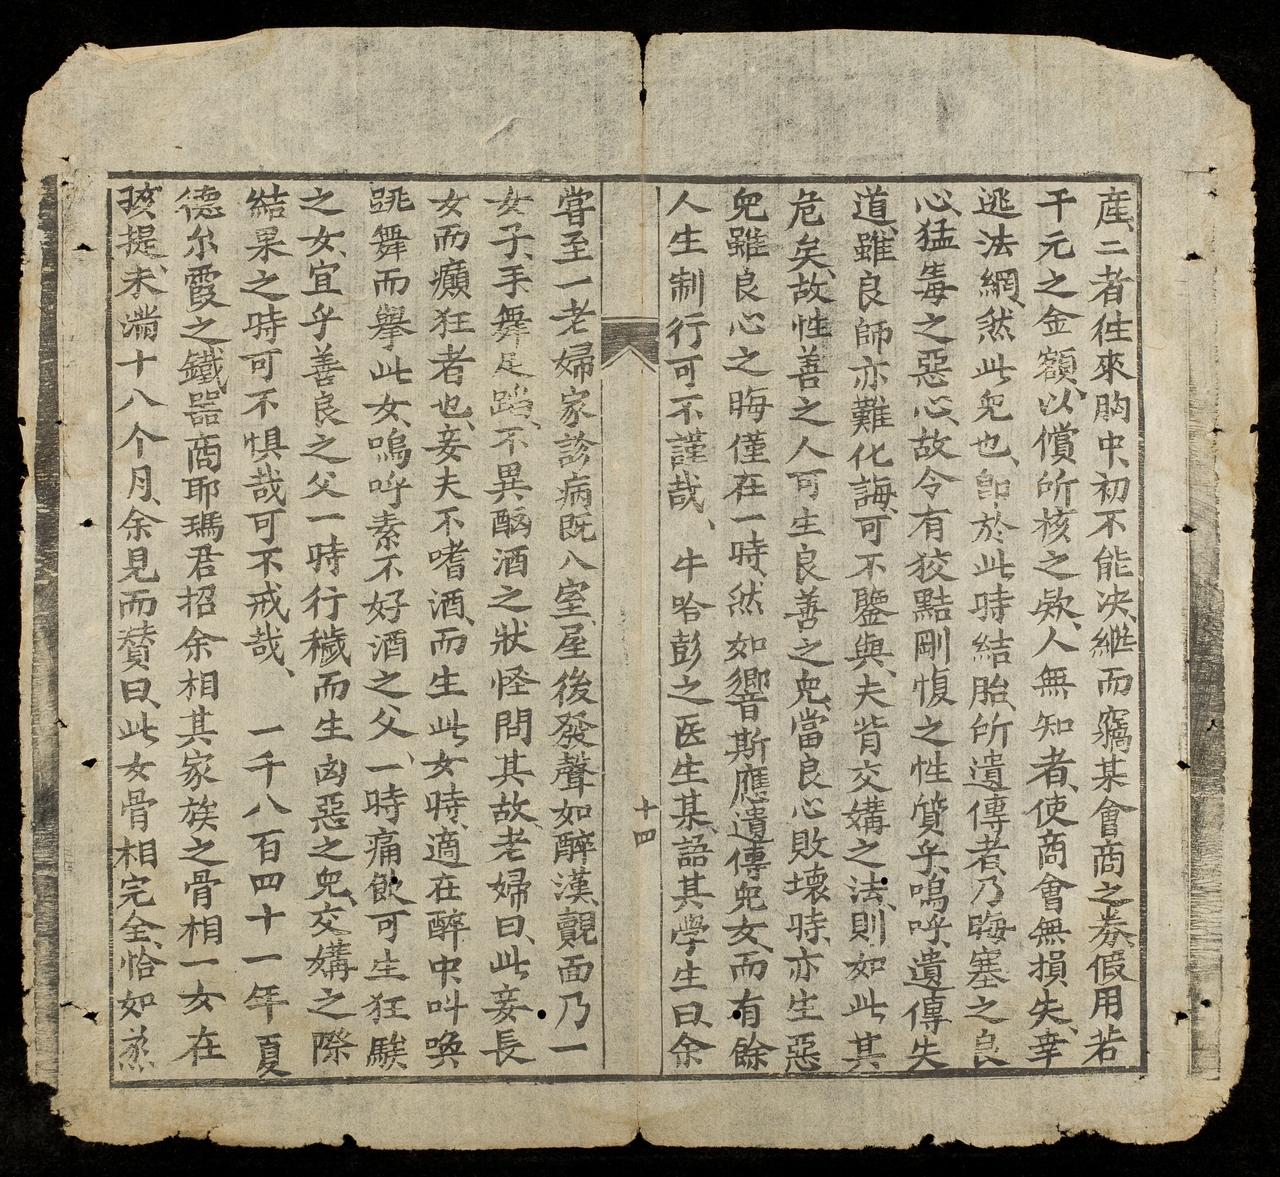 産、二者往來胸中、初不能决、繼而竊某會商之券、假用若
干元之金額、以償所核之欵、人無知者、使商會無損失、幸
逃法網、然此兒也、卽於此時結胎、所遺傳者、乃晦塞之良
心、猛毒之惡心、故令有狡黠剛愎之性質乎、嗚呼、遺傳失
道、雖良師亦難化誨、可不鑒與、夫肯交媾之法、則如此其
危矣、故性善之人可生良善之兒、當良心敗壞時、亦生惡
兒、雖良心之晦僅在一時、然如響斯應、遺傳兒女、而有餘
人生制行可不謹哉、　牛哈彭之医生某、語其学生曰、余
十四
嘗至一老婦家診病既八室、屋後發聲如醉漢、覿面乃一
女子、手舞足蹈、不異酗酒之狀、怪問其故、老婦曰、此妾長
女而癲狂者也、妾夫不嗜酒、而生此女時、適在醉中叫喚
跳舞而擧此女、嗚呼素不好酒之父、一時痛飮、可生狂騃
之女、宜乎善良之父一時行穢而生凶惡之兒、交媾之際
結果之時可不惧哉可不戒哉、　一千八百四十一年夏
德尔霞之鐵器商耶瑪君招余相其家族之骨相一女在
孩提、未滿十八个月、余見而賛曰、此女骨相完全、恰如烝